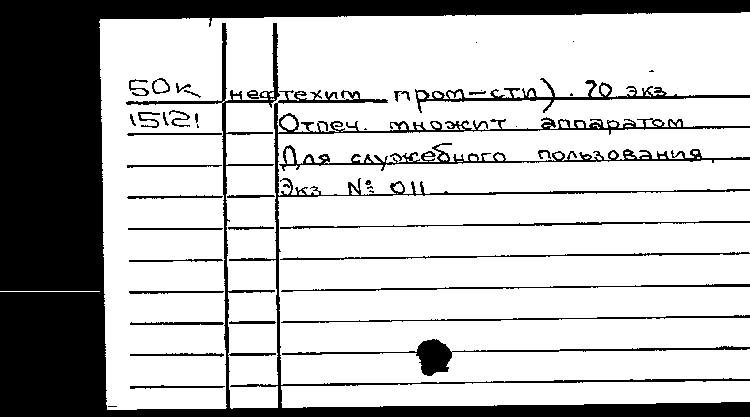 50к нефтехим пром-сти). 70 экз.
15121 Отпеч. множит. аппаратом
Для служебного пользования.
Экз. №: 011.